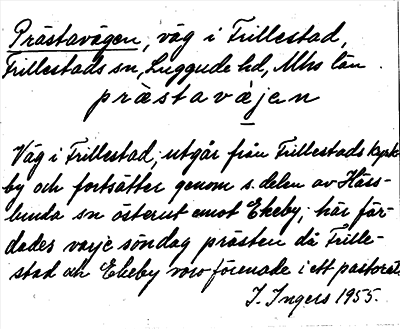 Prästavägen, väg i Frillestad,
Frillestads sn, Luggude hd, Mhs län.
prästavä̀jen
Väg i Frillestad; utgår från Frillestads kyrk-
by och fortsätter genom s. delen av Häss-
lunda sn österut emot Ekeby; här fär-
dades varje söndag prästen då Frille-
stad och Ekeby voro förenade i ett pastorat.
I. Ingers 1955.